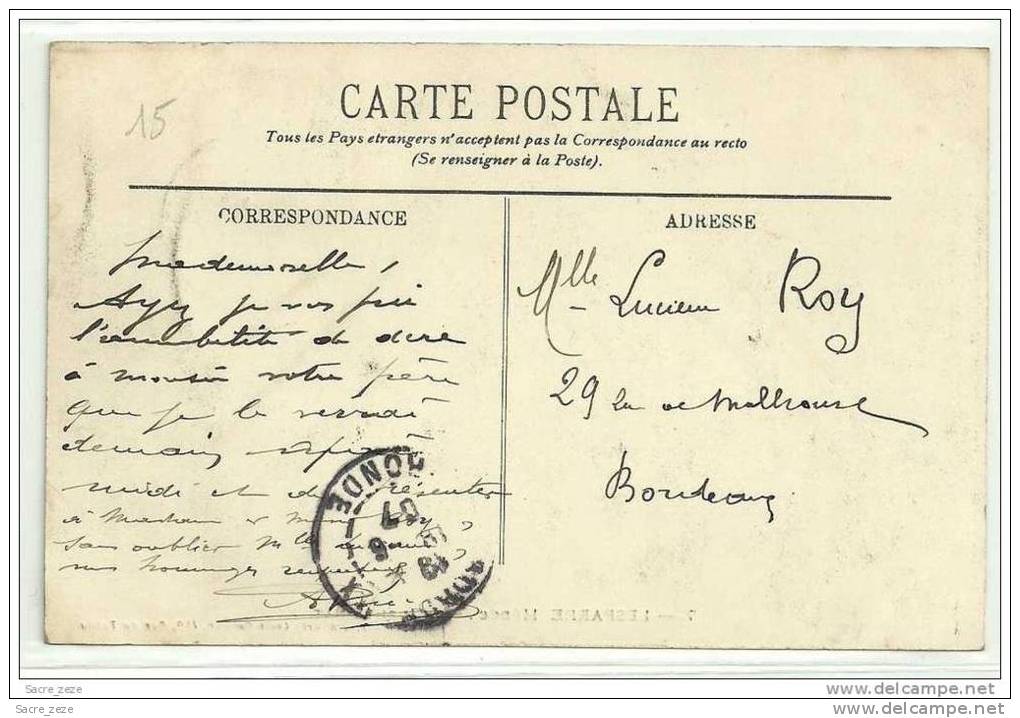 15
CARTE POSTALE
Tous les Pays etrangers n'acceptent pas la Correspondance au recto
(Se renseigner à la Poste).
CORRESPONDANCE
ADRESSE
Mademoiselle,
Ayez je vous prie
l'amabilité de dire
à monsieur votre père
que je le verrai
demain après
midi et de présenter
à Madame et Mons Roy,
sans oublier Mlle
mes hommages
Mlle Lucienne Roy
29 rue de Mulhouse
Bordeaux
BORDEAUX
GIRONDE
07
7 - LESPARRE MEDOC
Sacre_zeze
www.delcampe.net
Sacre_zeze
www.delcampe.net